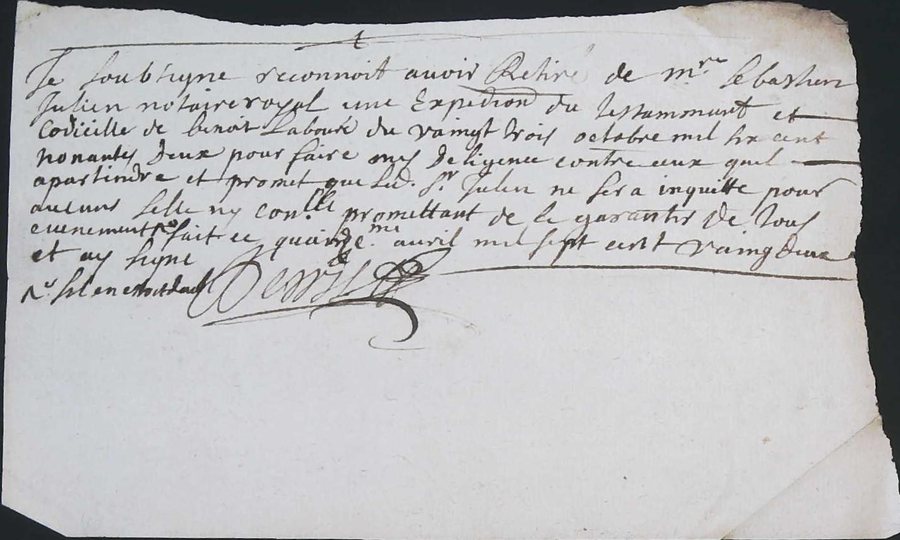 Je soubsigne reconnoit avoir Retiré de mre sebastien
Julien notaire royal une Expedion du testammant et
Codicille de benoit Labouré du vaingt trois octobre mil six cent
nonantes deux pour faire mes deligence contre ceux quel
apartindre et promet que led. sr Julien ne sera inquiette pour
aucuns selle ny con.lle promettant de le garantir de tous
evenement fait ce quainze.me avril mil sept cent vaing deux
et ay signe